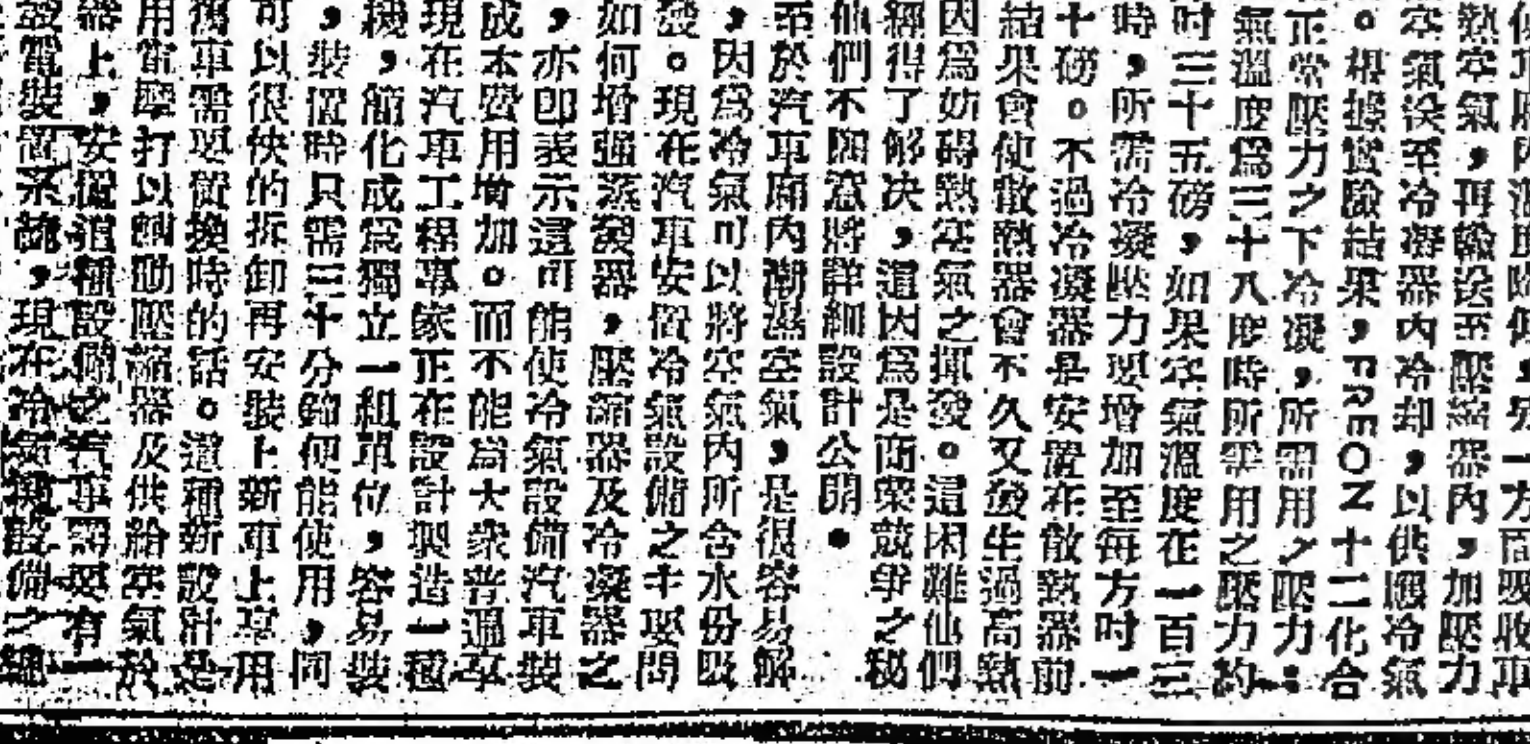 熱空氣，再輸送至壓縮器內，加壓力
空氣送至冷凝器內冷却，以供應冷氣
。根據實驗結果，FREON十二化合
正常壓力之下冷凝，所需用之壓力：
氣溫度爲三十八度時所需用之壓力約
吋三十五磅，如果空氣溫度在一百三
時，所需冷凝壓力要增加至每方吋一
十磅。不過冷凝器是安置在散熱器前
結果會使散熱器會不久又發生過高熱
因爲妨碍熱空氣之揮發。這困難他們
經得了解決，這因爲是商業競爭之秘
他們不願意將詳細設計公開。
至於汽車廂內潮濕空氣，是很容易解
，因爲冷氣可以將空氣內所含水份吸
發。現在汽車安置冷氣設備之主要問
如何增强蒸發器，壓縮器及冷凝器之
，亦卽表示這可能使冷氣設備汽車裝
成本費用增加。而不能爲大衆普遍享
現在汽車工程專家正在設計製造一種
機，簡化成爲獨立一組單位，容易裝
，裝置時只需三十分鐘便能使用，同
可以很快的拆卸再安裝上新車上享用
舊車需要置換時的話。這種新設計是
用電摩打以轉動壓縮器及供給空氣於
器上，安置這種設備之汽車需要有一
發電裝置系統，現在冷氣機設備之總